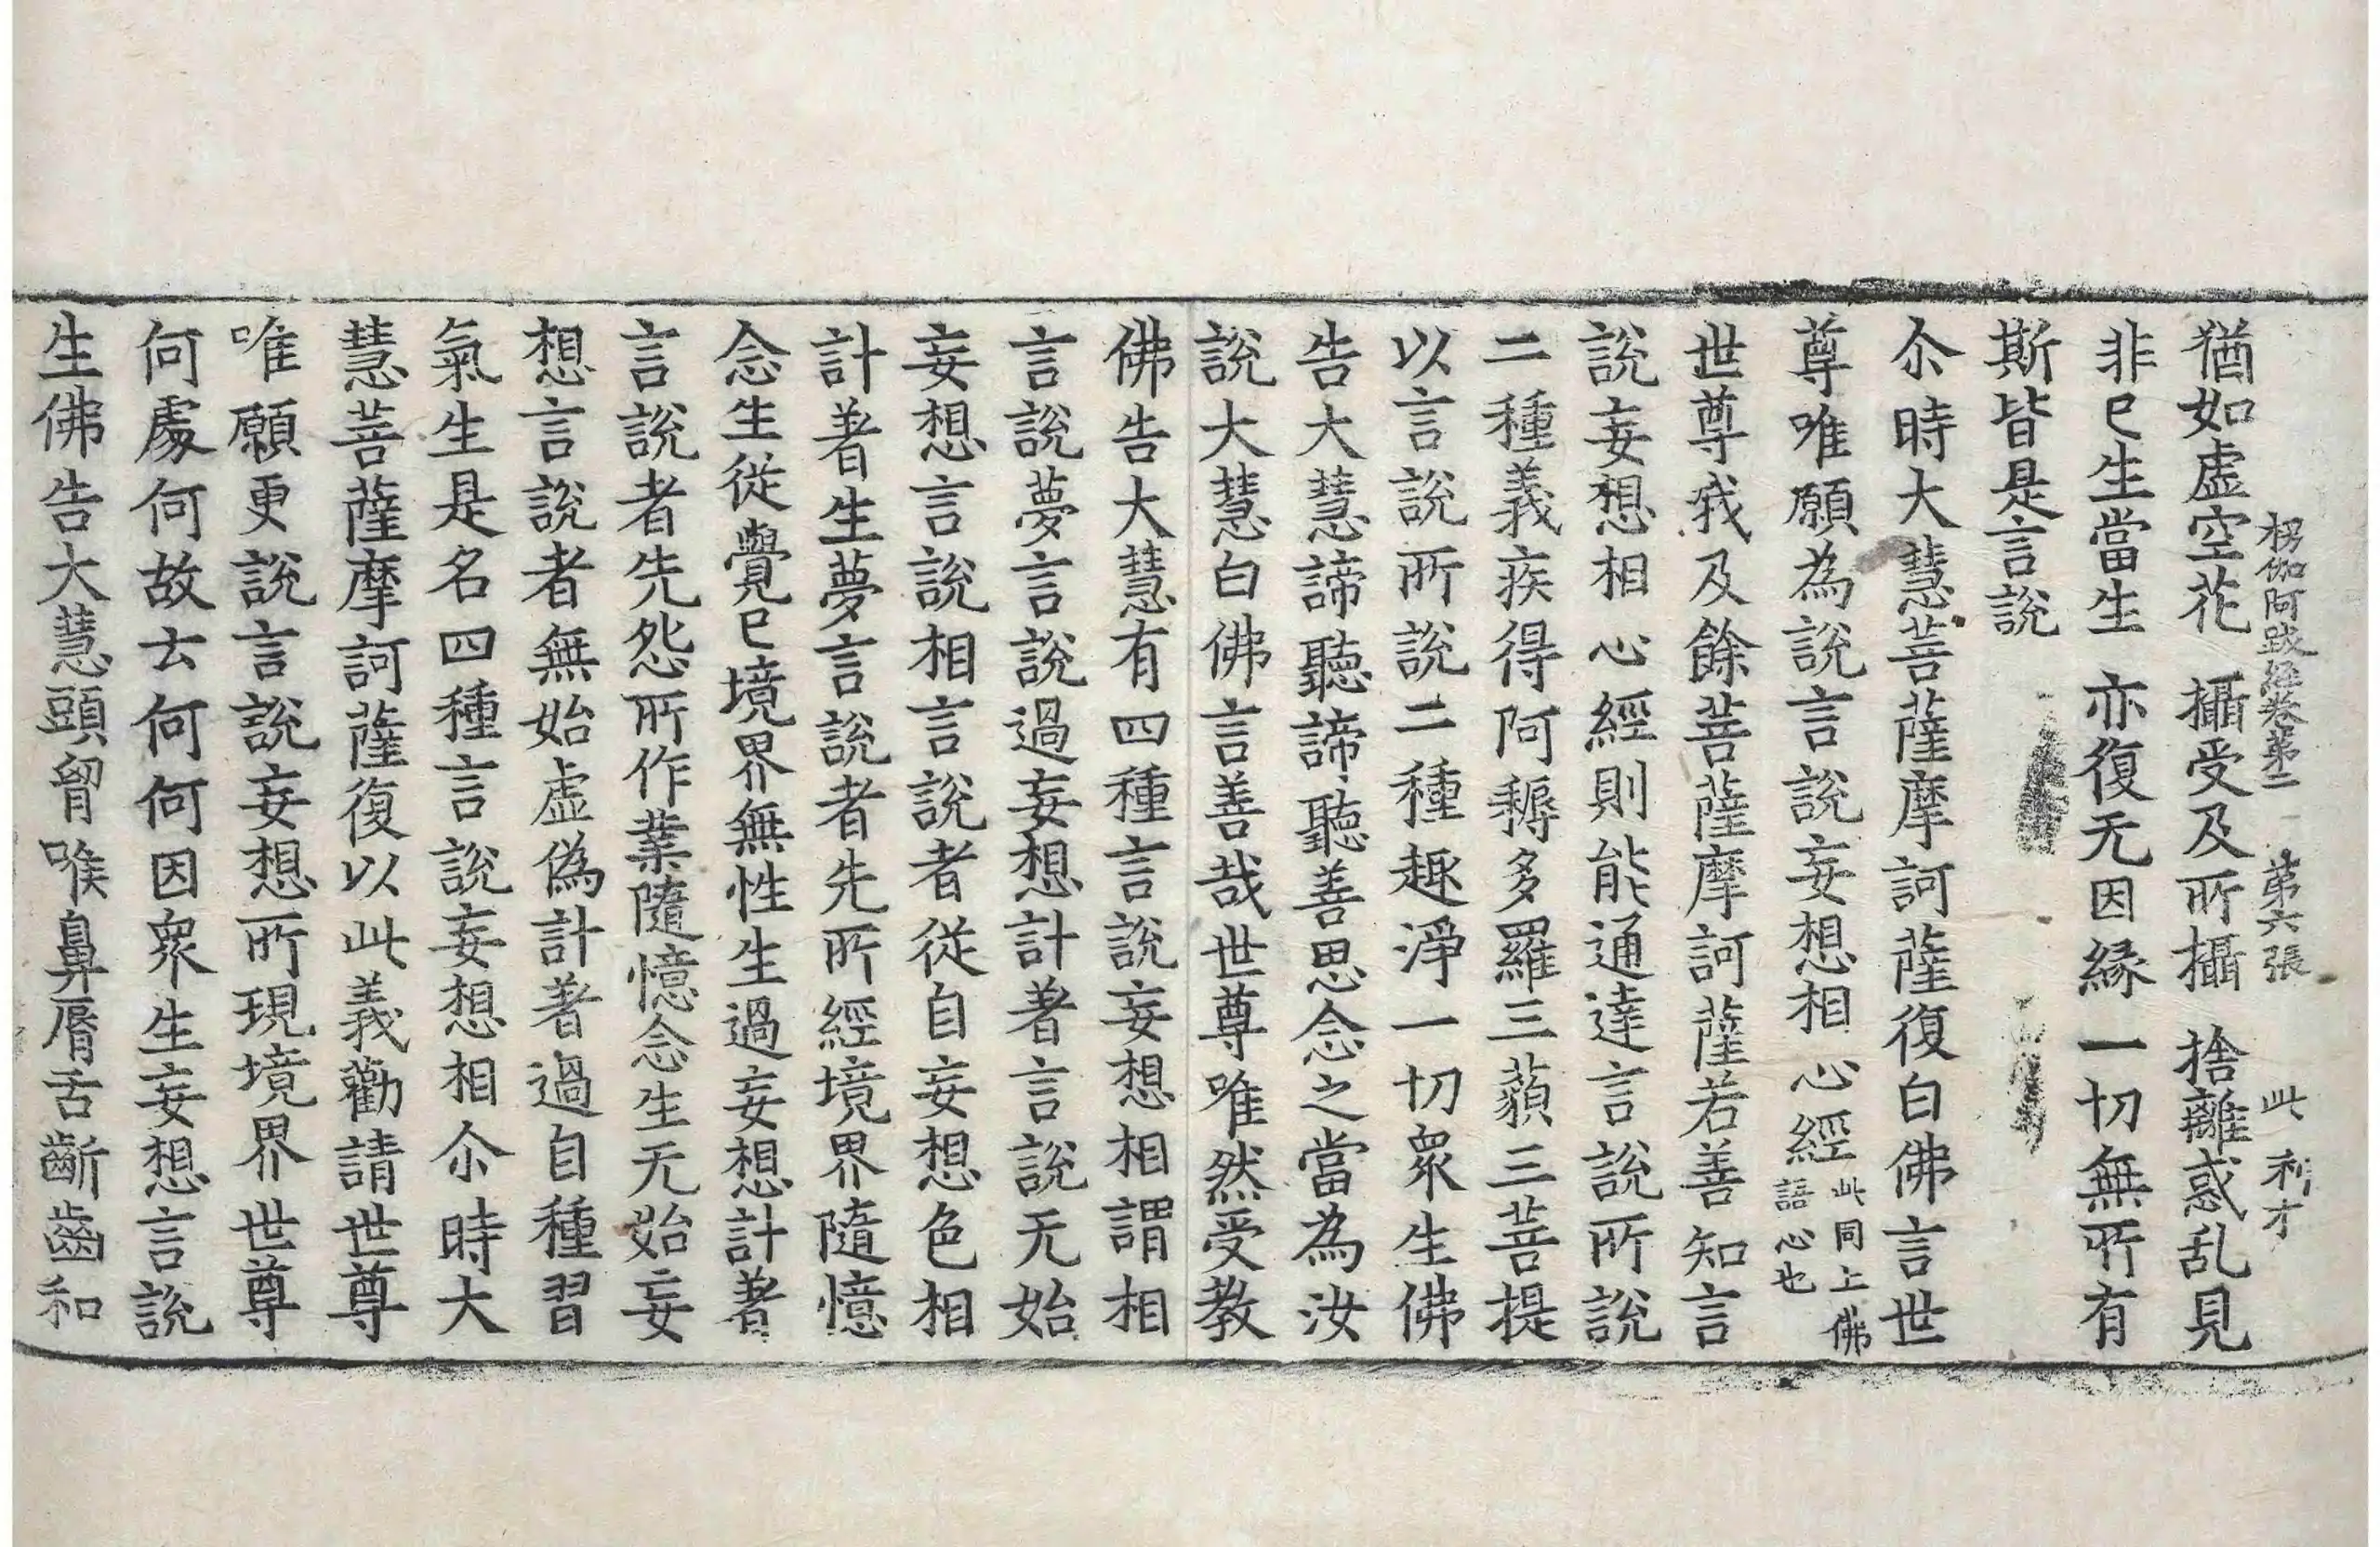 楞伽阿跋經卷第二 第六張 此 利才
猶如虛空花 攝受及所攝 捨離惑乱見
非已生當生 亦復无因緣 一切無所有
斯皆是言說
尒時大慧菩薩摩訶薩復白佛言世
尊唯願為說言說妄想相心經此同上佛語心也
世尊我及餘菩薩摩訶薩若善知言
說妄想相心經則能通達言說所說
二種義疾得阿耨多羅三藐三菩提
以言說所說二種趣淨一切衆生佛
告大慧諦聽諦聽善思念之當為汝
說大慧白佛言善哉世尊唯然受教
佛告大慧有四種言說妄想相謂相
言說夢言說過妄想計著言說无始
妄想言說相言說者從自妄想色相
計著生夢言說者先所經境界隨憶
念生從覺已境界無性生過妄想計著
言說者先怨所作業隨憶念生无始妄
想言說者無始虛偽計著過自種習
氣生是名四種言說妄想相尒時大
慧菩薩摩訶薩復以此義勸請世尊
唯願更說言說妄想所現境界世尊
何處何故云何何因衆生妄想言說
生佛告大慧頭胷喉鼻脣舌齗齒和